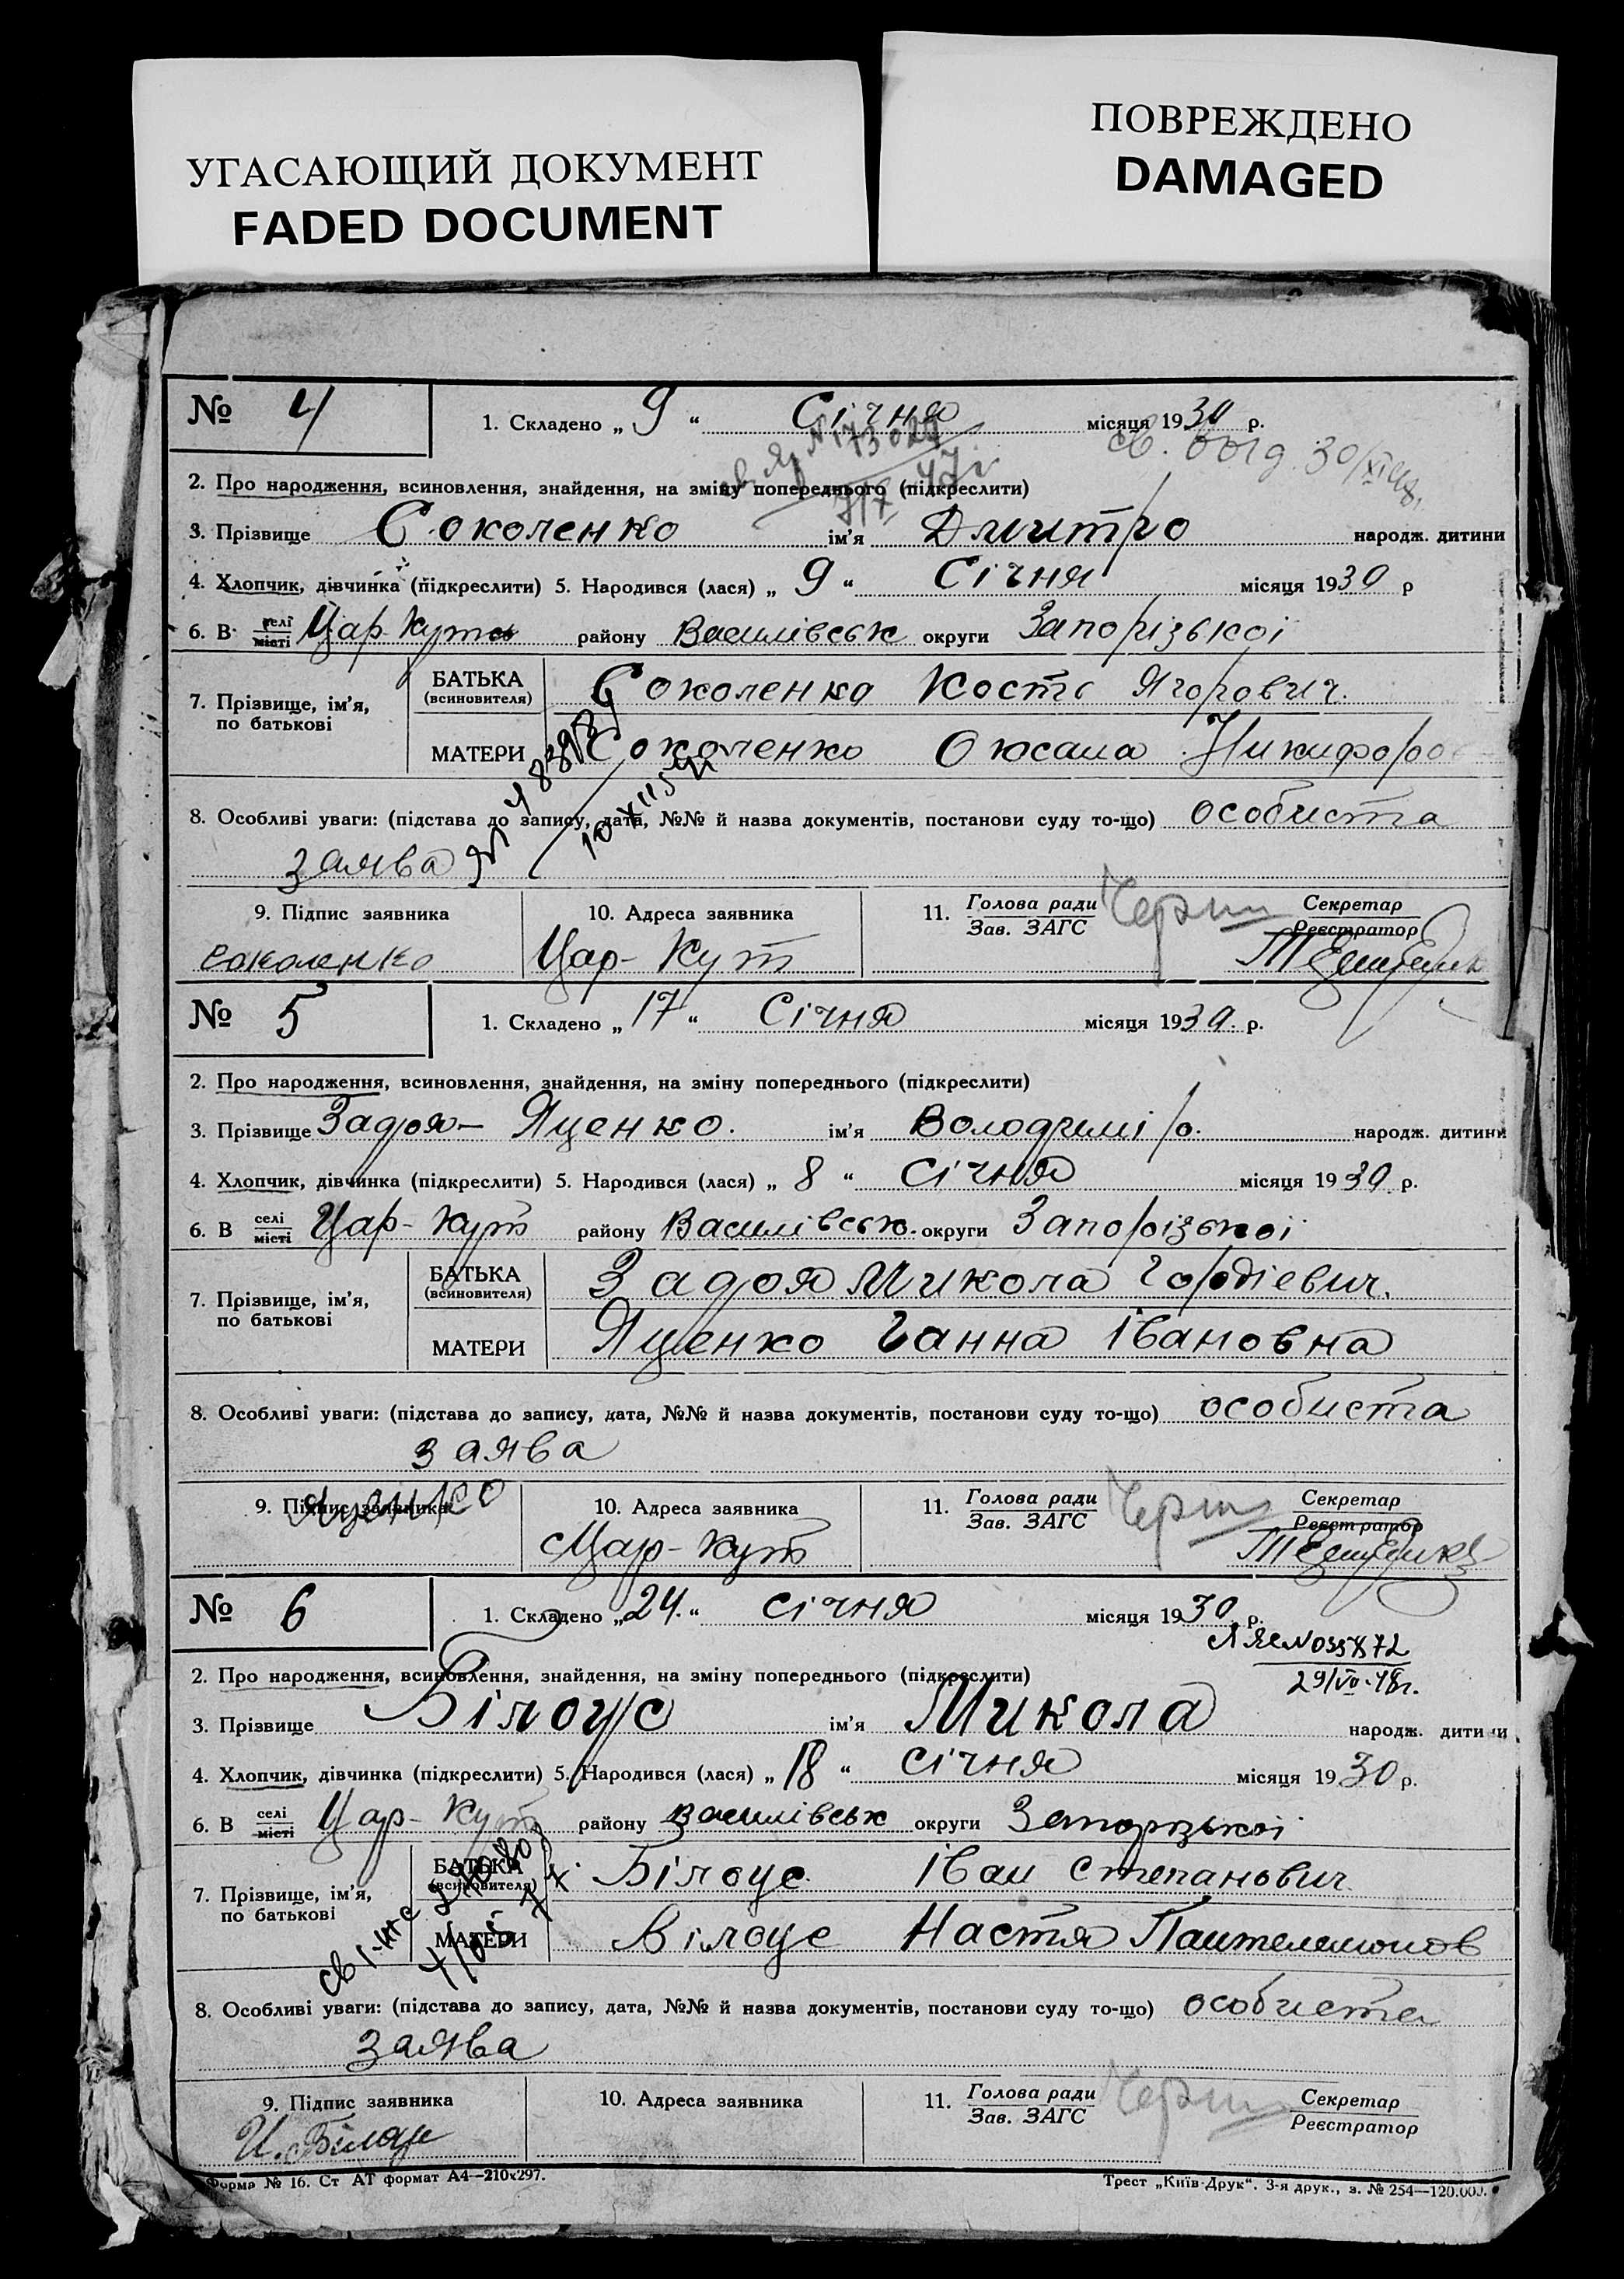 УГАСАЮЩИЙ ДОКУМЕНТ
FADED DOCUMENT
ПОВРЕЖДЕНО
DAMAGED
№ 4
1. Складено „ 9 “ Січня місяця 1930 р.
2. Про народження, всиновлення, знайдення, на зміну попереднього (підкреслити)
3. Прізвище Соколенко ім’я Дмитро народж. дитини
4. Хлопчик, дівчинка (підкреслити) 5. Народився (лася) „ 9 “ Січня місяця 1930 р
6. В селі місті Цар-Кут району Василівськ округи Запорізької
7. Прізвище, ім’я, по батькові
БАТЬКА (всиновителя) Соколенко Кость Ягорович.
МАТЕРИ Соколенко Оксана Никифоров
8. Особливі уваги: (підстава до запису, дата, №№ й назва документів, постанови суду то-що) особиста
заява
9. Підпис заявника 10. Адреса заявника 11. Голова ради Зав. ЗАГС Секретар Реєстратор
соколенко Цар-Кут
№ 5
1. Складено „ 17 “ Січня місяця 1930. р.
2. Про народження, всиновлення, знайдення, на зміну попереднього (підкреслити)
3. Прізвище Задоя – Яценко. ім’я Володимір. народж. дитини
4. Хлопчик, дівчинка (підкреслити) 5. Народився (лася) „ 8 “ січня місяця 1930. р.
6. В селі місті Цар-Кут району Василівськ. округи Запорізької
7. Прізвище, ім’я, по батькові
БАТЬКА (всиновителя) Задоя Микола Гордієвич.
МАТЕРИ Яценко Ганна Івановна
8. Особливі уваги: (підстава до запису, дата, №№ й назва документів, постанови суду то-що) особиста
заява
9. Підпис заявника 10. Адреса заявника 11. Голова ради Зав. ЗАГС Секретар Реєстратор
Яценко Цар-Кут
№ 6
1. Складено „ 24. “ січня місяця 1930 р.
2. Про народження, всиновлення, знайдення, на зміну попереднього (підкреслити)
29/VII-48г.
3. Прізвище Білоус ім’я Микола народж. дитини
4. Хлопчик, дівчинка (підкреслити) 5. Народився (лася) „ 18 “ січня місяця 1930 р.
6. В селі місті Цар-Кут району Василівськ округи Запорізької
7. Прізвище, ім’я, по батькові
БАТЬКА (всиновителя) Білоус Іван Степанович
МАТЕРИ Білоус Настя Пантелемонов
8. Особливі уваги: (підстава до запису, дата, №№ й назва документів, постанови суду то-що) особиста
заява
9. Підпис заявника 10. Адреса заявника 11. Голова ради Зав. ЗАГС Секретар Реєстратор
И. Білоус
Форма № 16. Ст АТ формат А4—210х297.
Трест „Київ-Друк“. 3-я друк., з. № 254—120.000.